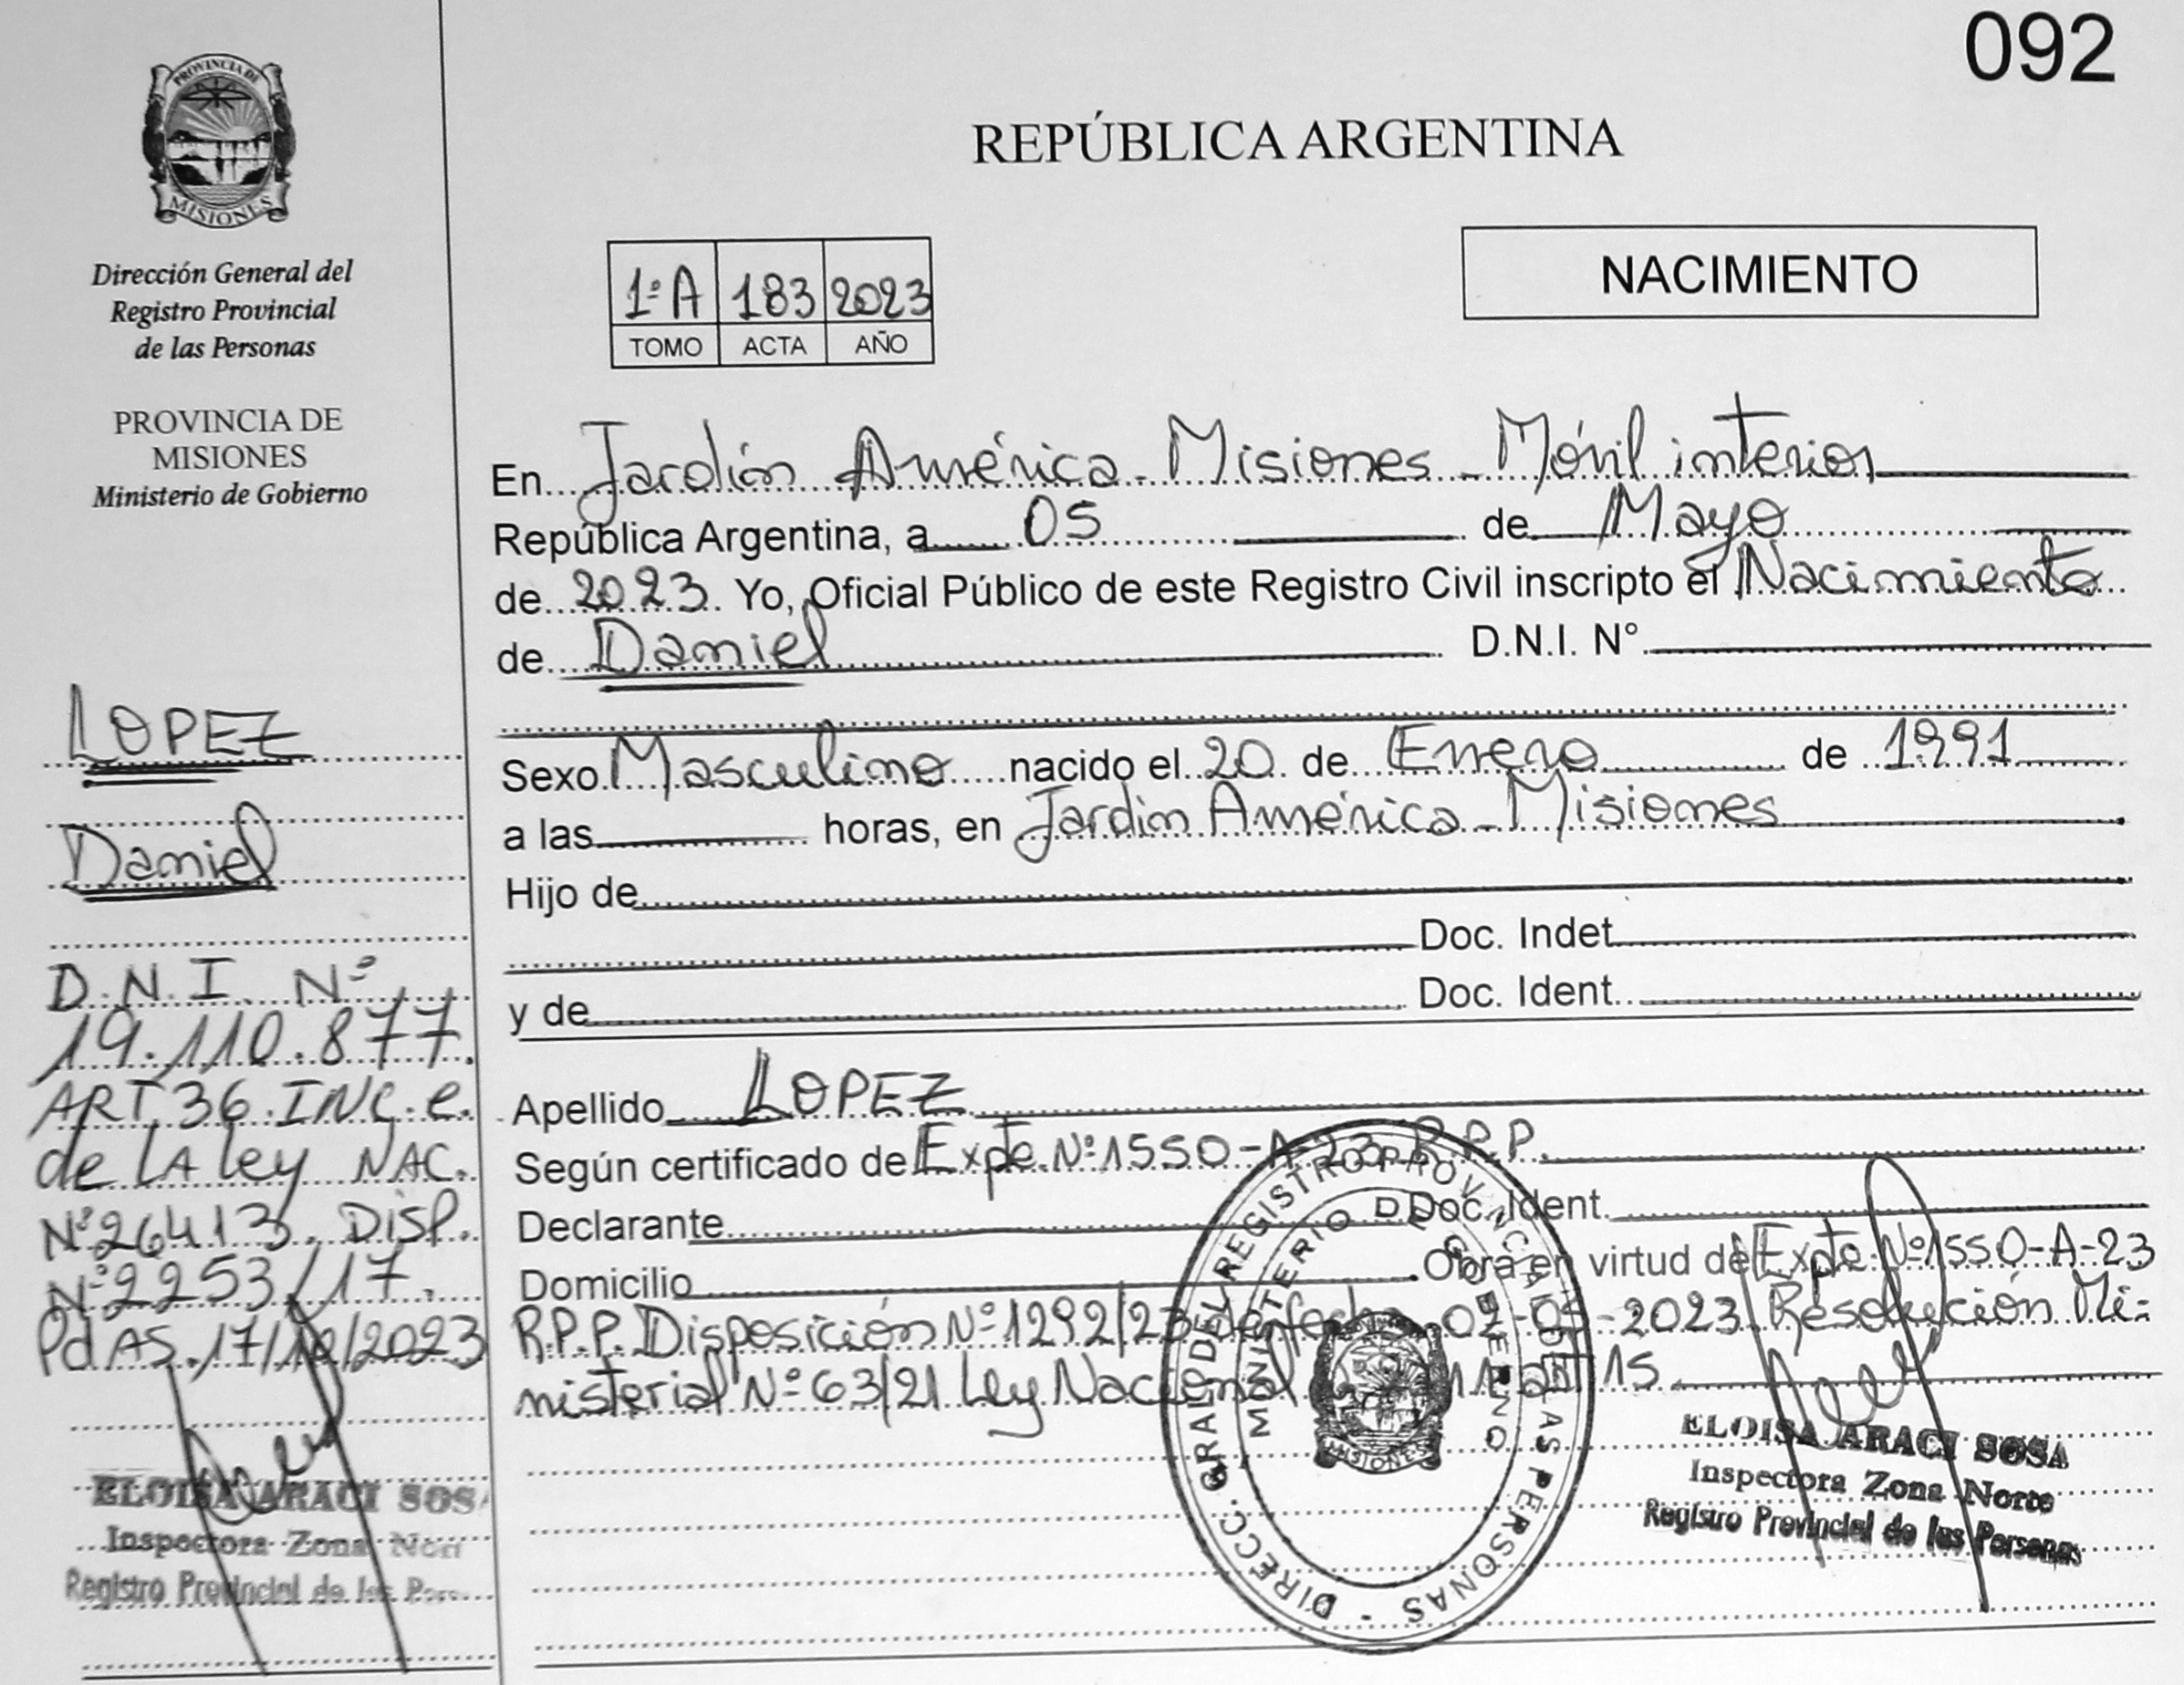 092
PROVINCIA DE
MISIONES
Dirección General del
Registro Provincial
de las Personas
PROVINCIA DE
MISIONES
Ministerio de Gobierno
LOPEZ
Daniel
D.N.I. Nº
19.110.877.
ART.36.INC.e.
de LA ley NAC.
Nº26413. DISP.
Nº2253/17.
Pd AS. 17/10/2023
ELOISA ARACI SOS
Inspectora Zona Nort
Registro Provincial de las Pers
REPÚBLICA ARGENTINA
NACIMIENTO
1º A 183 2023
TOMO ACTA AÑO
En Jardín América - Misiones - Móvil interior
República Argentina, a 05 de Mayo
de 2023. Yo, Oficial Público de este Registro Civil inscripto el Nacimiento
de Daniel D.N.I. N°
Sexo Masculino nacido el 20 de Enero de 1991
a las horas, en Jardín América - Misiones
Hijo de
Doc. Indet
y de Doc. Ident.
Apellido LOPEZ
Según certificado de Expte. Nº1550-A-23 R.P.P.
Declarante Doc. Ident.
Domicilio Obra en virtud de Expte. Nº1550-A-23
R.P.P. Disposición Nº1292/23 de fecha 02-05-2023 Resolución Mi-
nisterial Nº 63/21 Ley Nacional art 15.
DIRECC. GRAL DEL REGISTRO PROVINCIAL DE LAS PERSONAS -
MINISTERIO DE GOBIERNO
MISIONES
ELOISA ARACI SOSA
Inspectora Zona Norte
Registro Provincial de las Personas